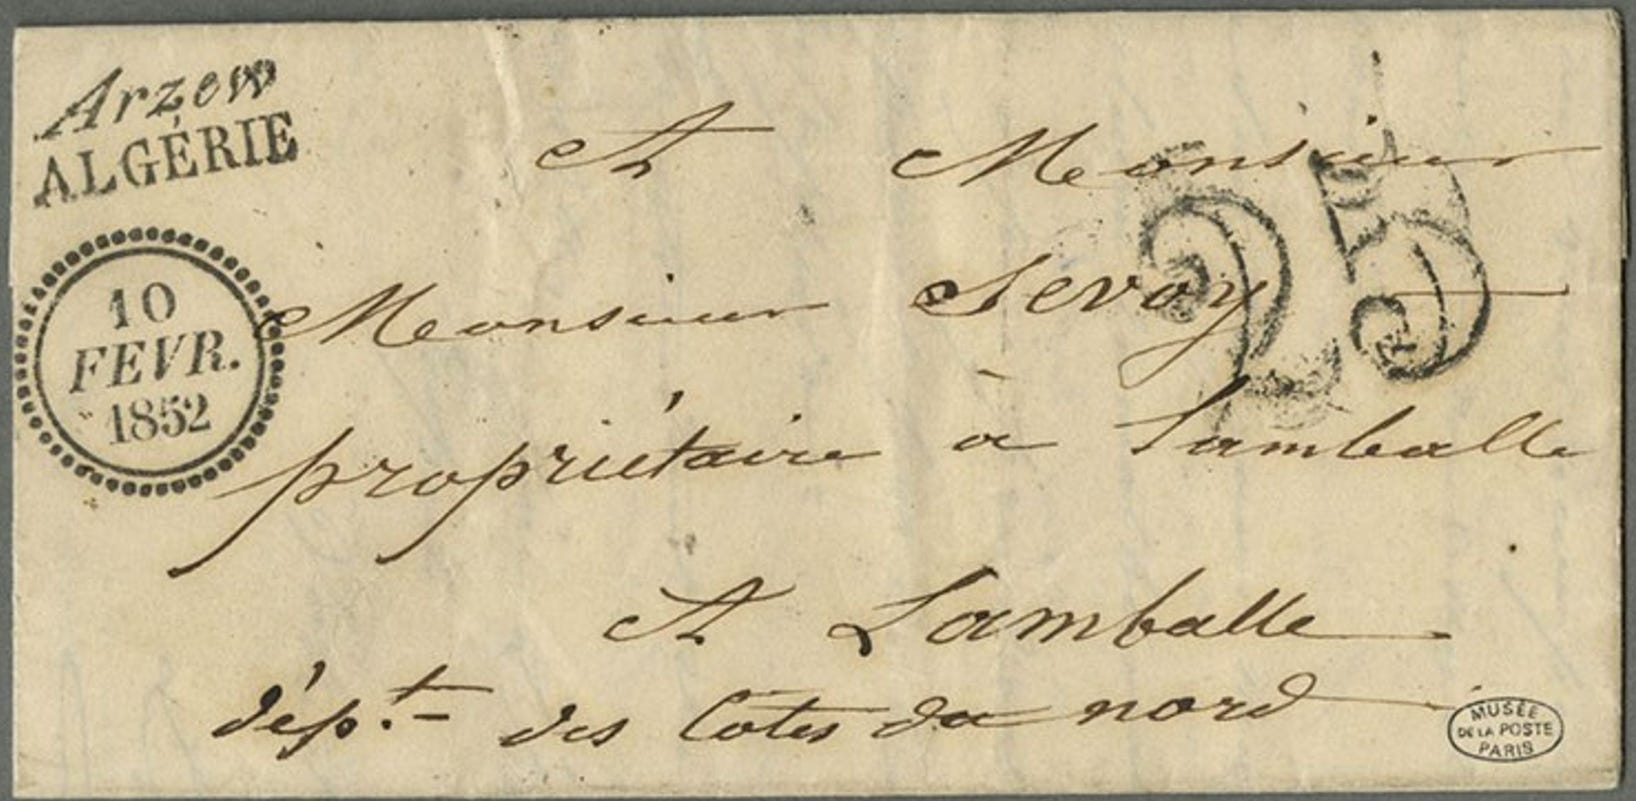 Arzew
ALGÉRIE
10
FEVR.
1852
25
A Monsieur
Monsieur Sevoy
propriétaire à Lamballe
A Lamballe
dép.t des Cotes du nord
MUSÉE
DE LA POSTE
PARIS